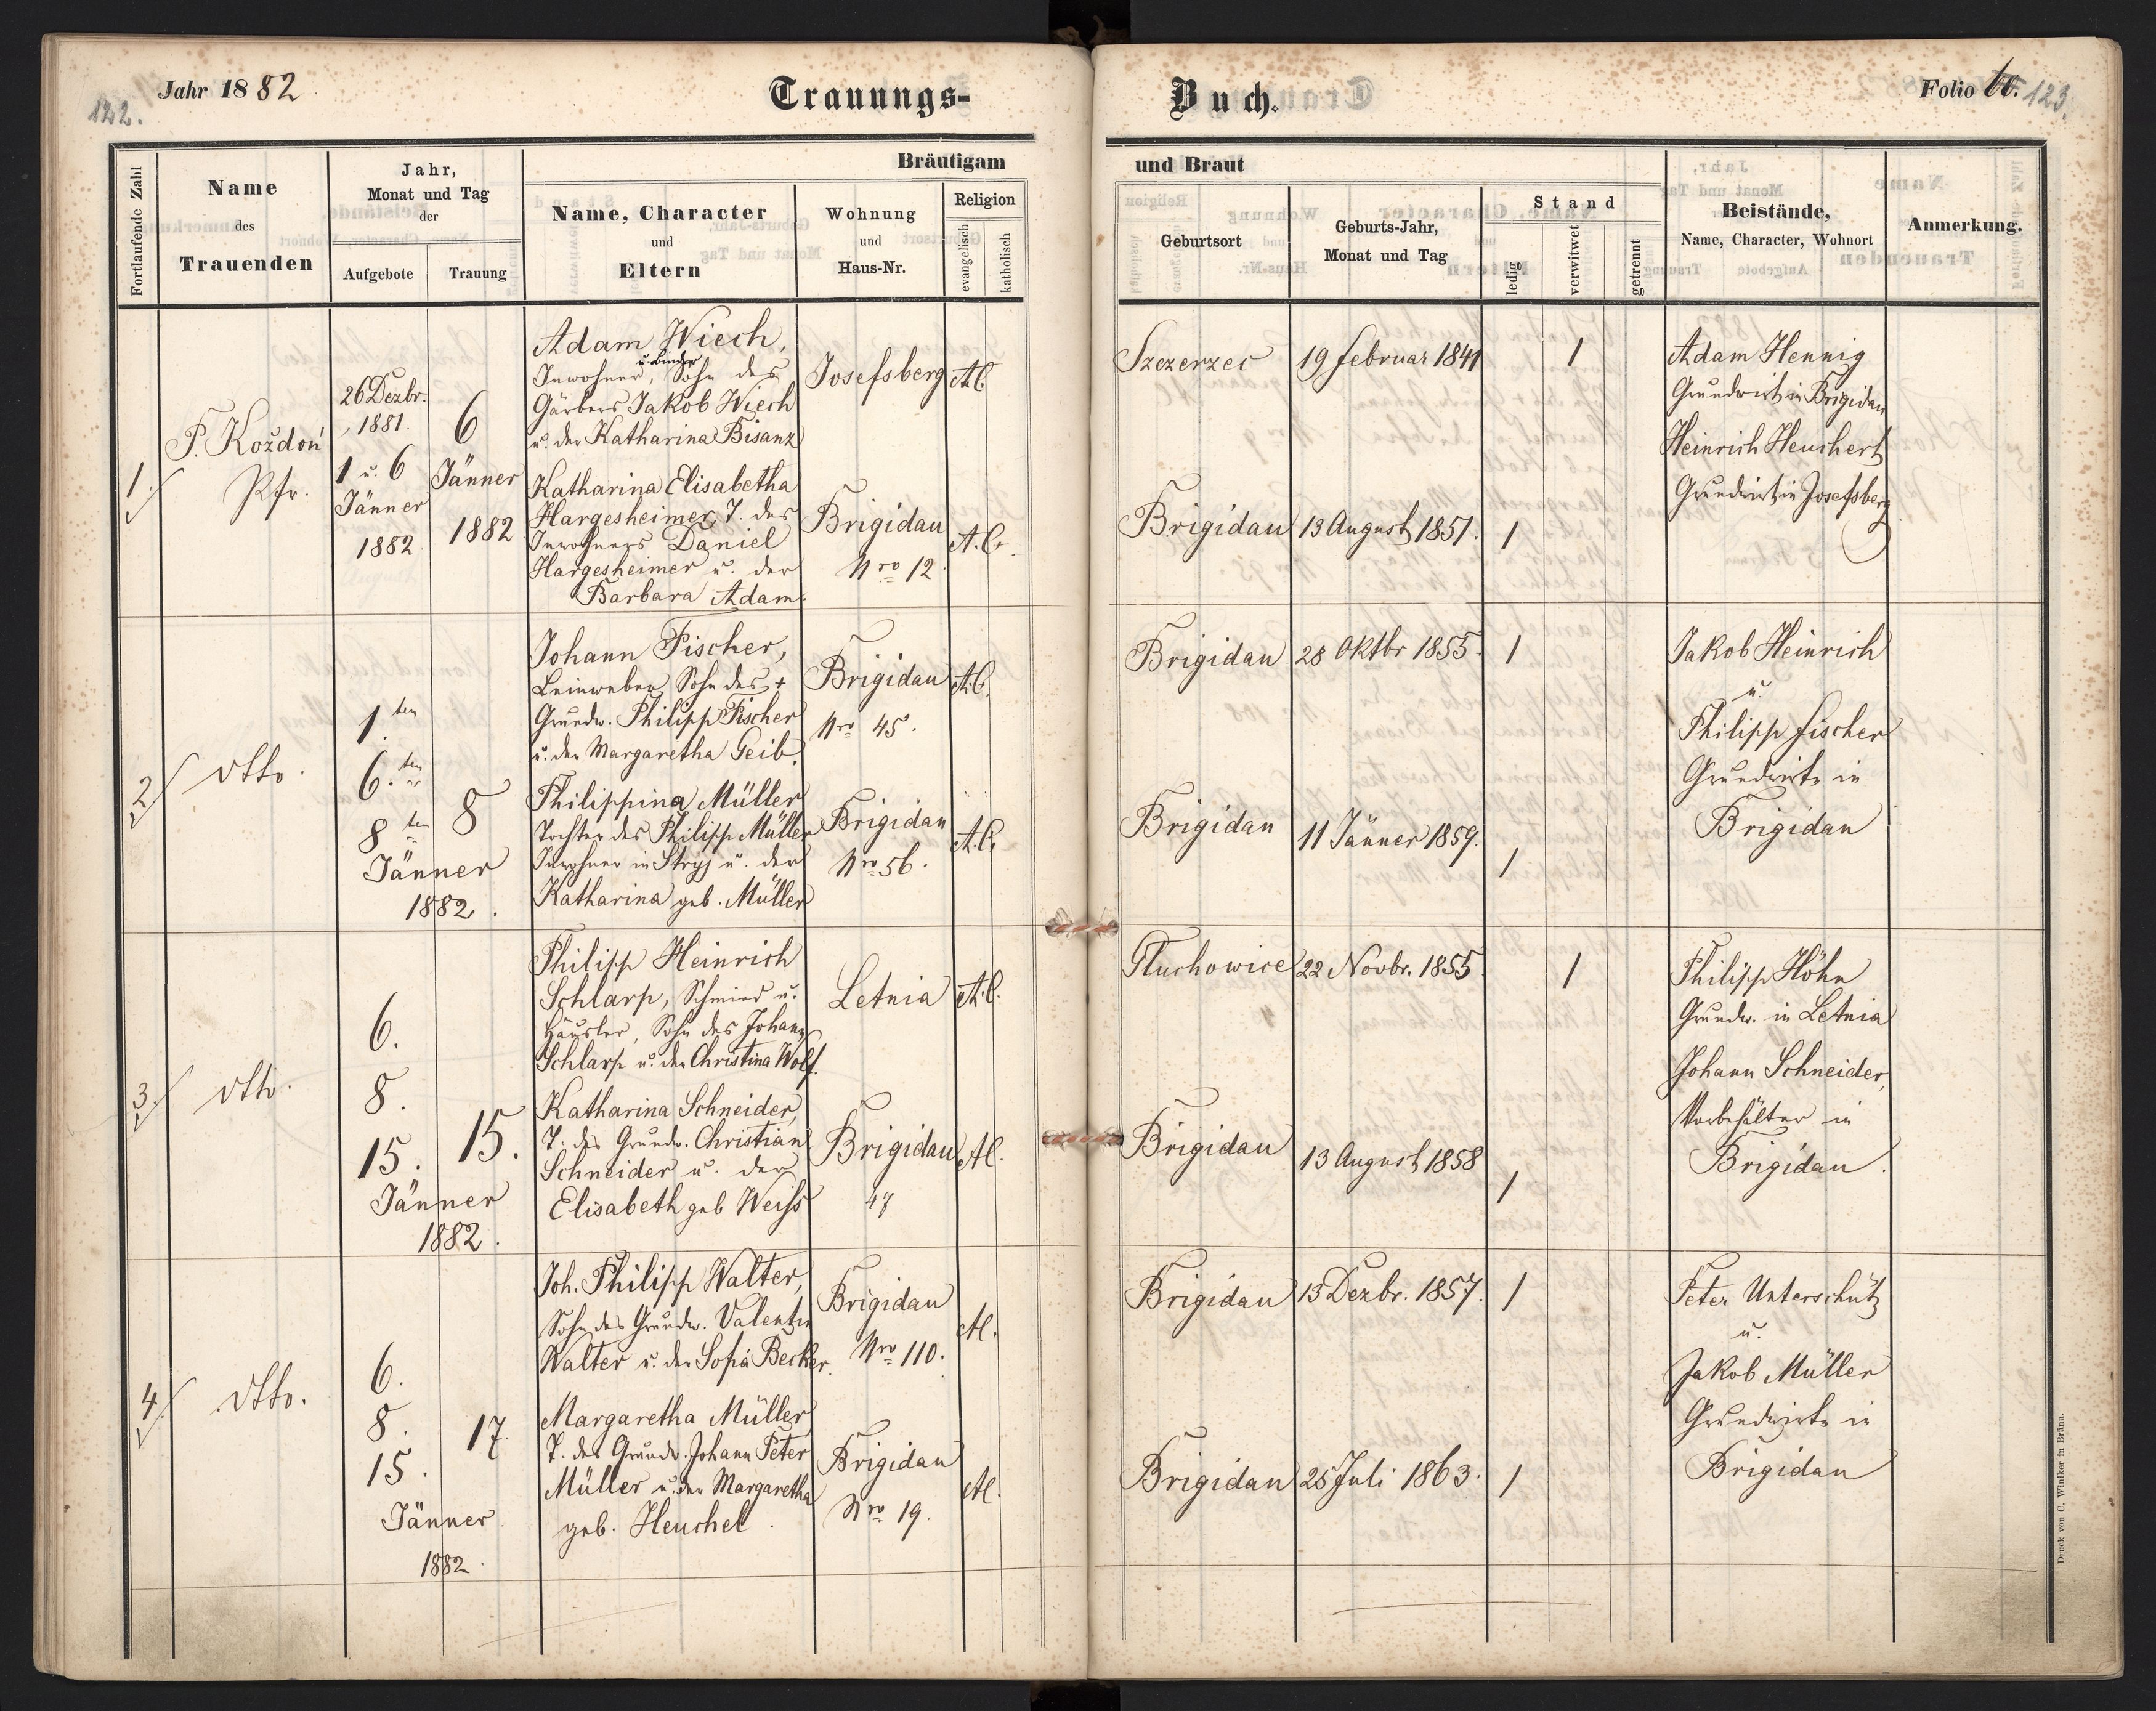 122.
Jahr 1882
Trauungs-
Buch.
Folio
123.
Fortlaufende Zahl
Name
des
Trauenden
Jahr,
Monat und Tag
der
Aufgebote
Trauung
Bräutigam
Name, Character
und
Eltern
Wohnung
und
Haus-Nr.
Religion
evangelisch
katholisch
und Braut
Geburtsort
Geburts-Jahr,
Monat und Tag
Stand
ledig
verwitwet
getrennt
Beistände,
Name, Character, Wohnort
Anmerkung.
1.
P. Kożdoń
Pfr.
26 Dezbr.
1881.
1 u. 6
Jänner
1882.
6
Jänner
1882
Adam Wiech,
u. Binder
Inwohner, Sohn des
Gärbers Jakob Wiech
u. der Katharina Bisanz
Josefsberg
A.C.
Szczerzec
19 Februar 1841
1
Katharina Elisabetha
Hargesheimer, T. des
Inwohners Daniel
Hargesheimer u. der
Barbara Adam.
Brigidau
Nro 12
A.C.
Brigidau
13 August 1851.
1
Adam Hennig
Grundwirt in Brigidau
Heinrich Heuchert
Grundwirt in Josefsberg
2
dtto.
1. ten
6. ten
8 ten
Jänner
1882.
8
Johann Fischer,
Leinweber, Sohn des +
Grundw. Philipp Fischer
u. der Margaretha Geib.
Brigidau
Nro 45.
A.C.
Brigidau
28 Oktbr 1855.
1
Philippina Müller
Tochter des Philipp Müller
Inwohner in Stryj u. der
Katharina geb. Müller
Brigidau
Nro 56.
A.C.
Brigidau
11 Jänner 1859.
1
Jakob Heinrich
u.
Philipp Fischer
Grundwirte in
Brigidau
3.
dtto.
6.
8.
15.
Jänner
1882.
15.
Philipp Heinrich
Schlarp, Schmied u.
Häusler, Sohn des Johann
Schlarp u. der Christina Wolf.
Letnia
A.C.
Tluchowice
22 Novbr. 1855.
1
Katharina Schneider,
T. des Grundw. Christian
Schneider u. der
Elisabeth geb Weiss
Brigidau
47
AC.
Brigidau
13 August 1858
1
Philipp Höhn
Grundw. in Letnia
Johann Schneider,
Vorbehälter in
Brigidau.
4.
dtto.
6.
8.
15.
Jänner.
1882.
17.
Joh. Philipp Walter,
Sohn des Grundw. Valentin
Walter u. der Sofia Becker.
Brigidau
Nro 110.
AC.
Brigidau
13 Dezbr. 1857.
1
Margaretha Müller,
T. des Grundw. Johann Peter
Müller u. der Margaretha
geb. Heuchel.
Brigidau
Nro 19.
AC.
Brigidau
25 Juli 1863.
1
Peter Unterschütz
u.
Jakob Müller
Grundwirte in
Brigidau
Druck von C. Winiker in Brünn.